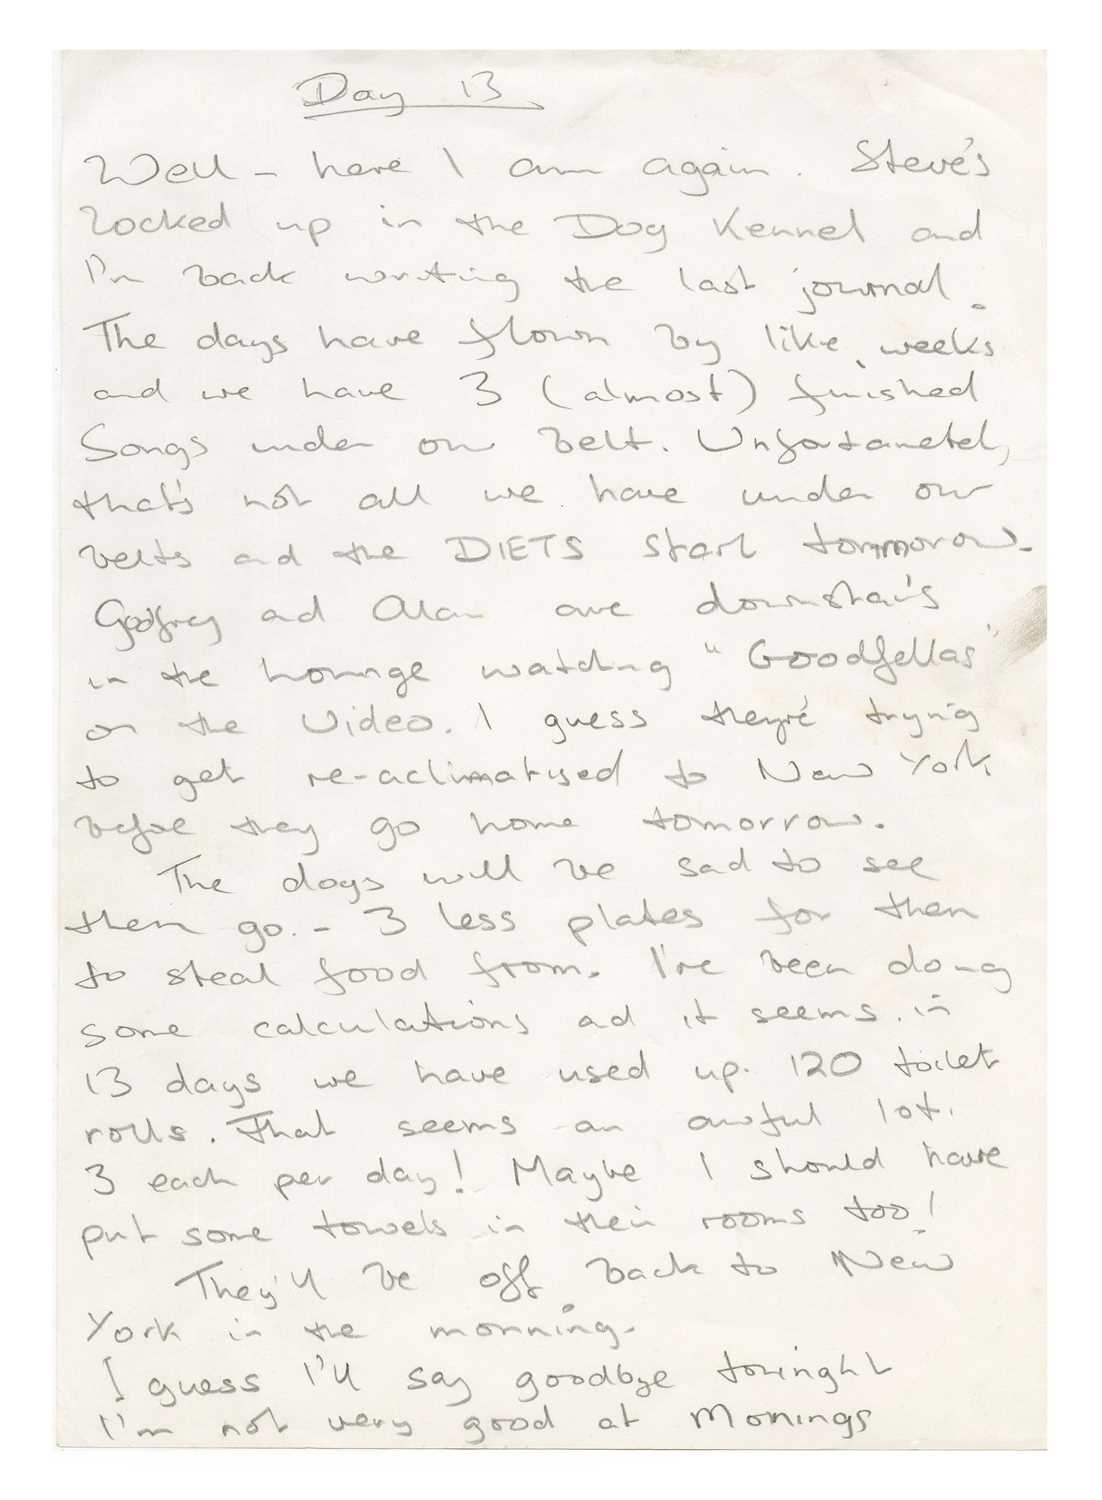 Day 13
Well - here I am again. Steve's
locked up in the Dog Kennel and
I'm back writing the last journal.
The days have flown by like weeks
and we have 3 (almost) finished
Songs under our belt. Unfortanetel,
that's not all we have under our
belts and the DIETS start tommorow.
Godfrey and Alan are downstairs
in the lounge watching "Goodfellas"
on the Video. I guess they're trying
to get re-aclimatised to New York
before they go home tomorrow.
The dogs will be sad to see
them go. - 3 less plates for them
to steal food from. I've been doing
some calculations ad it seems in
13 days we have used up 120 toilet
rolls. That seems an awful lot.
3 each per day! Maybe I should have
put some towels in their rooms too!
They'll be off back to New
York in the morning.
I guess I'll say goodbye toninght
I'm not very good at Monings